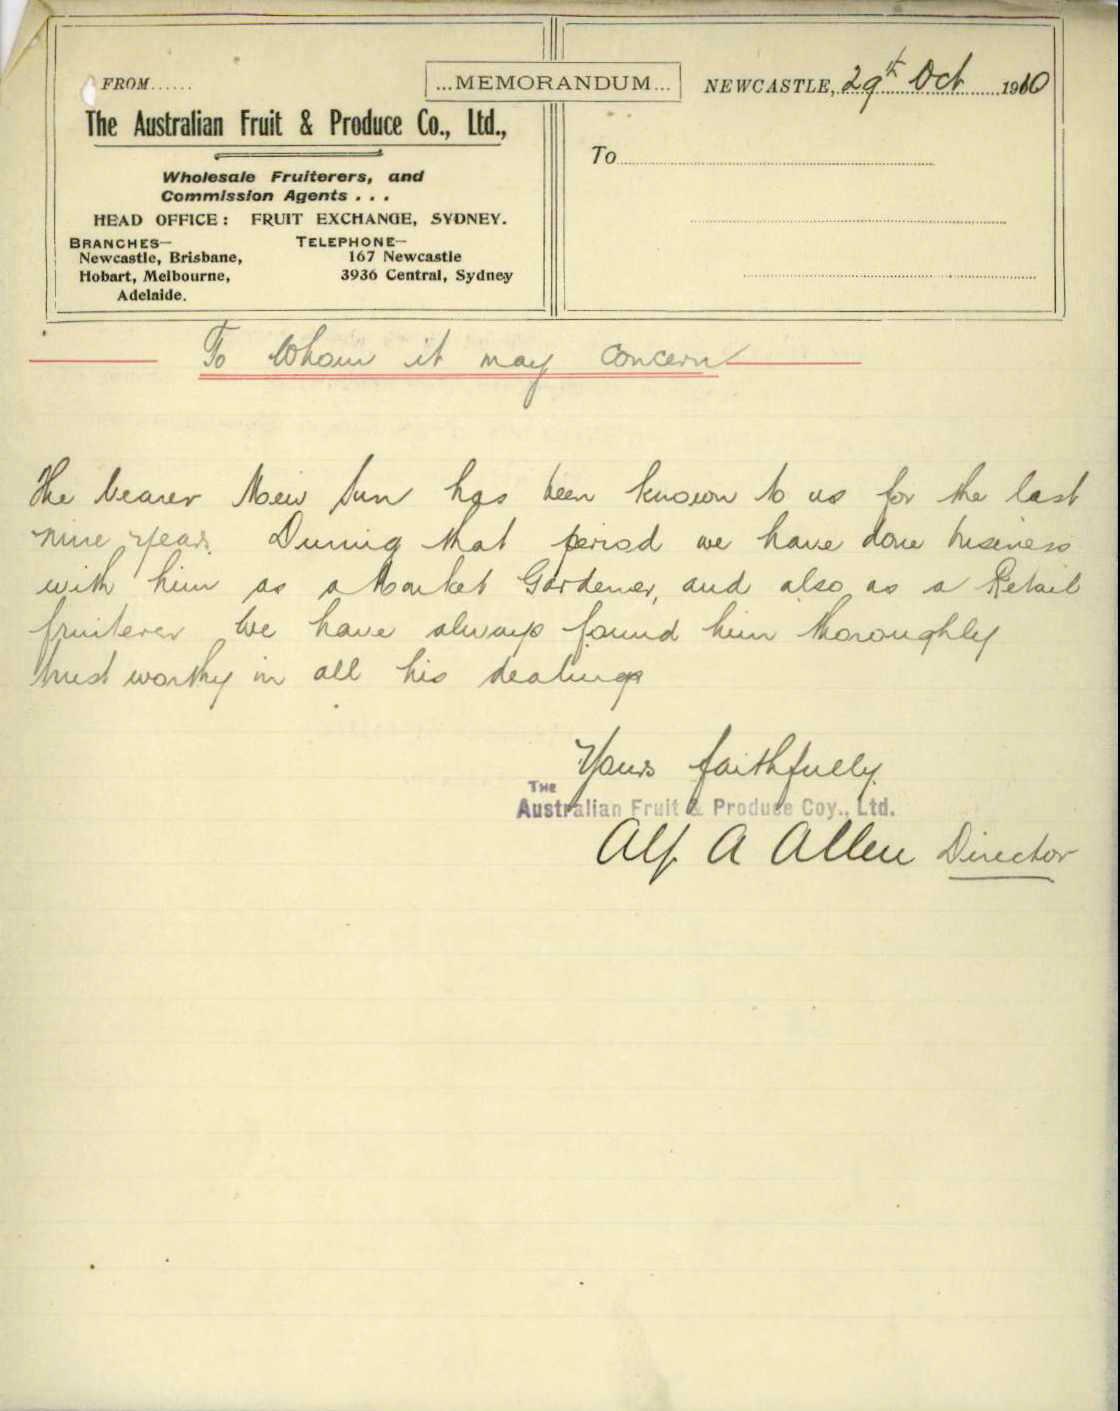 FROM......
...MEMORANDUM...
NEWCASTLE, 29th Oct 1910
The Australian Fruit & Produce Co., Ltd.,
To
Wholesale Fruiterers, and
Commission Agents . . .
HEAD OFFICE: FRUIT EXCHANGE, SYDNEY.
BRANCHES—
Newcastle, Brisbane,
Hobart, Melbourne,
Adelaide.
TELEPHONE—
167 Newcastle
3936 Central, Sydney
To Whom it may concern
The bearer Mew Sun has been known to us for the last
nine years. During that period we have done business
with him as a Market Gardener, and also as a Retail
fruiterer We have always found him thoroughly
trust worthy in all his dealings
Yours faithfully.
THE
Australian Fruit & Produce Coy., Ltd.
Alf A Allen Director